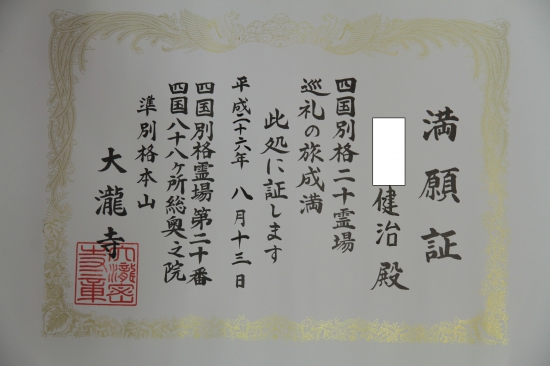 満願証
健治 殿
四国別格二十霊場
巡礼の旅成満
此処に証します
平成二十六年 八月十三日
四国別格霊場第二十番
四国八十八ヶ所総奥之院
準別格本山
大瀧寺